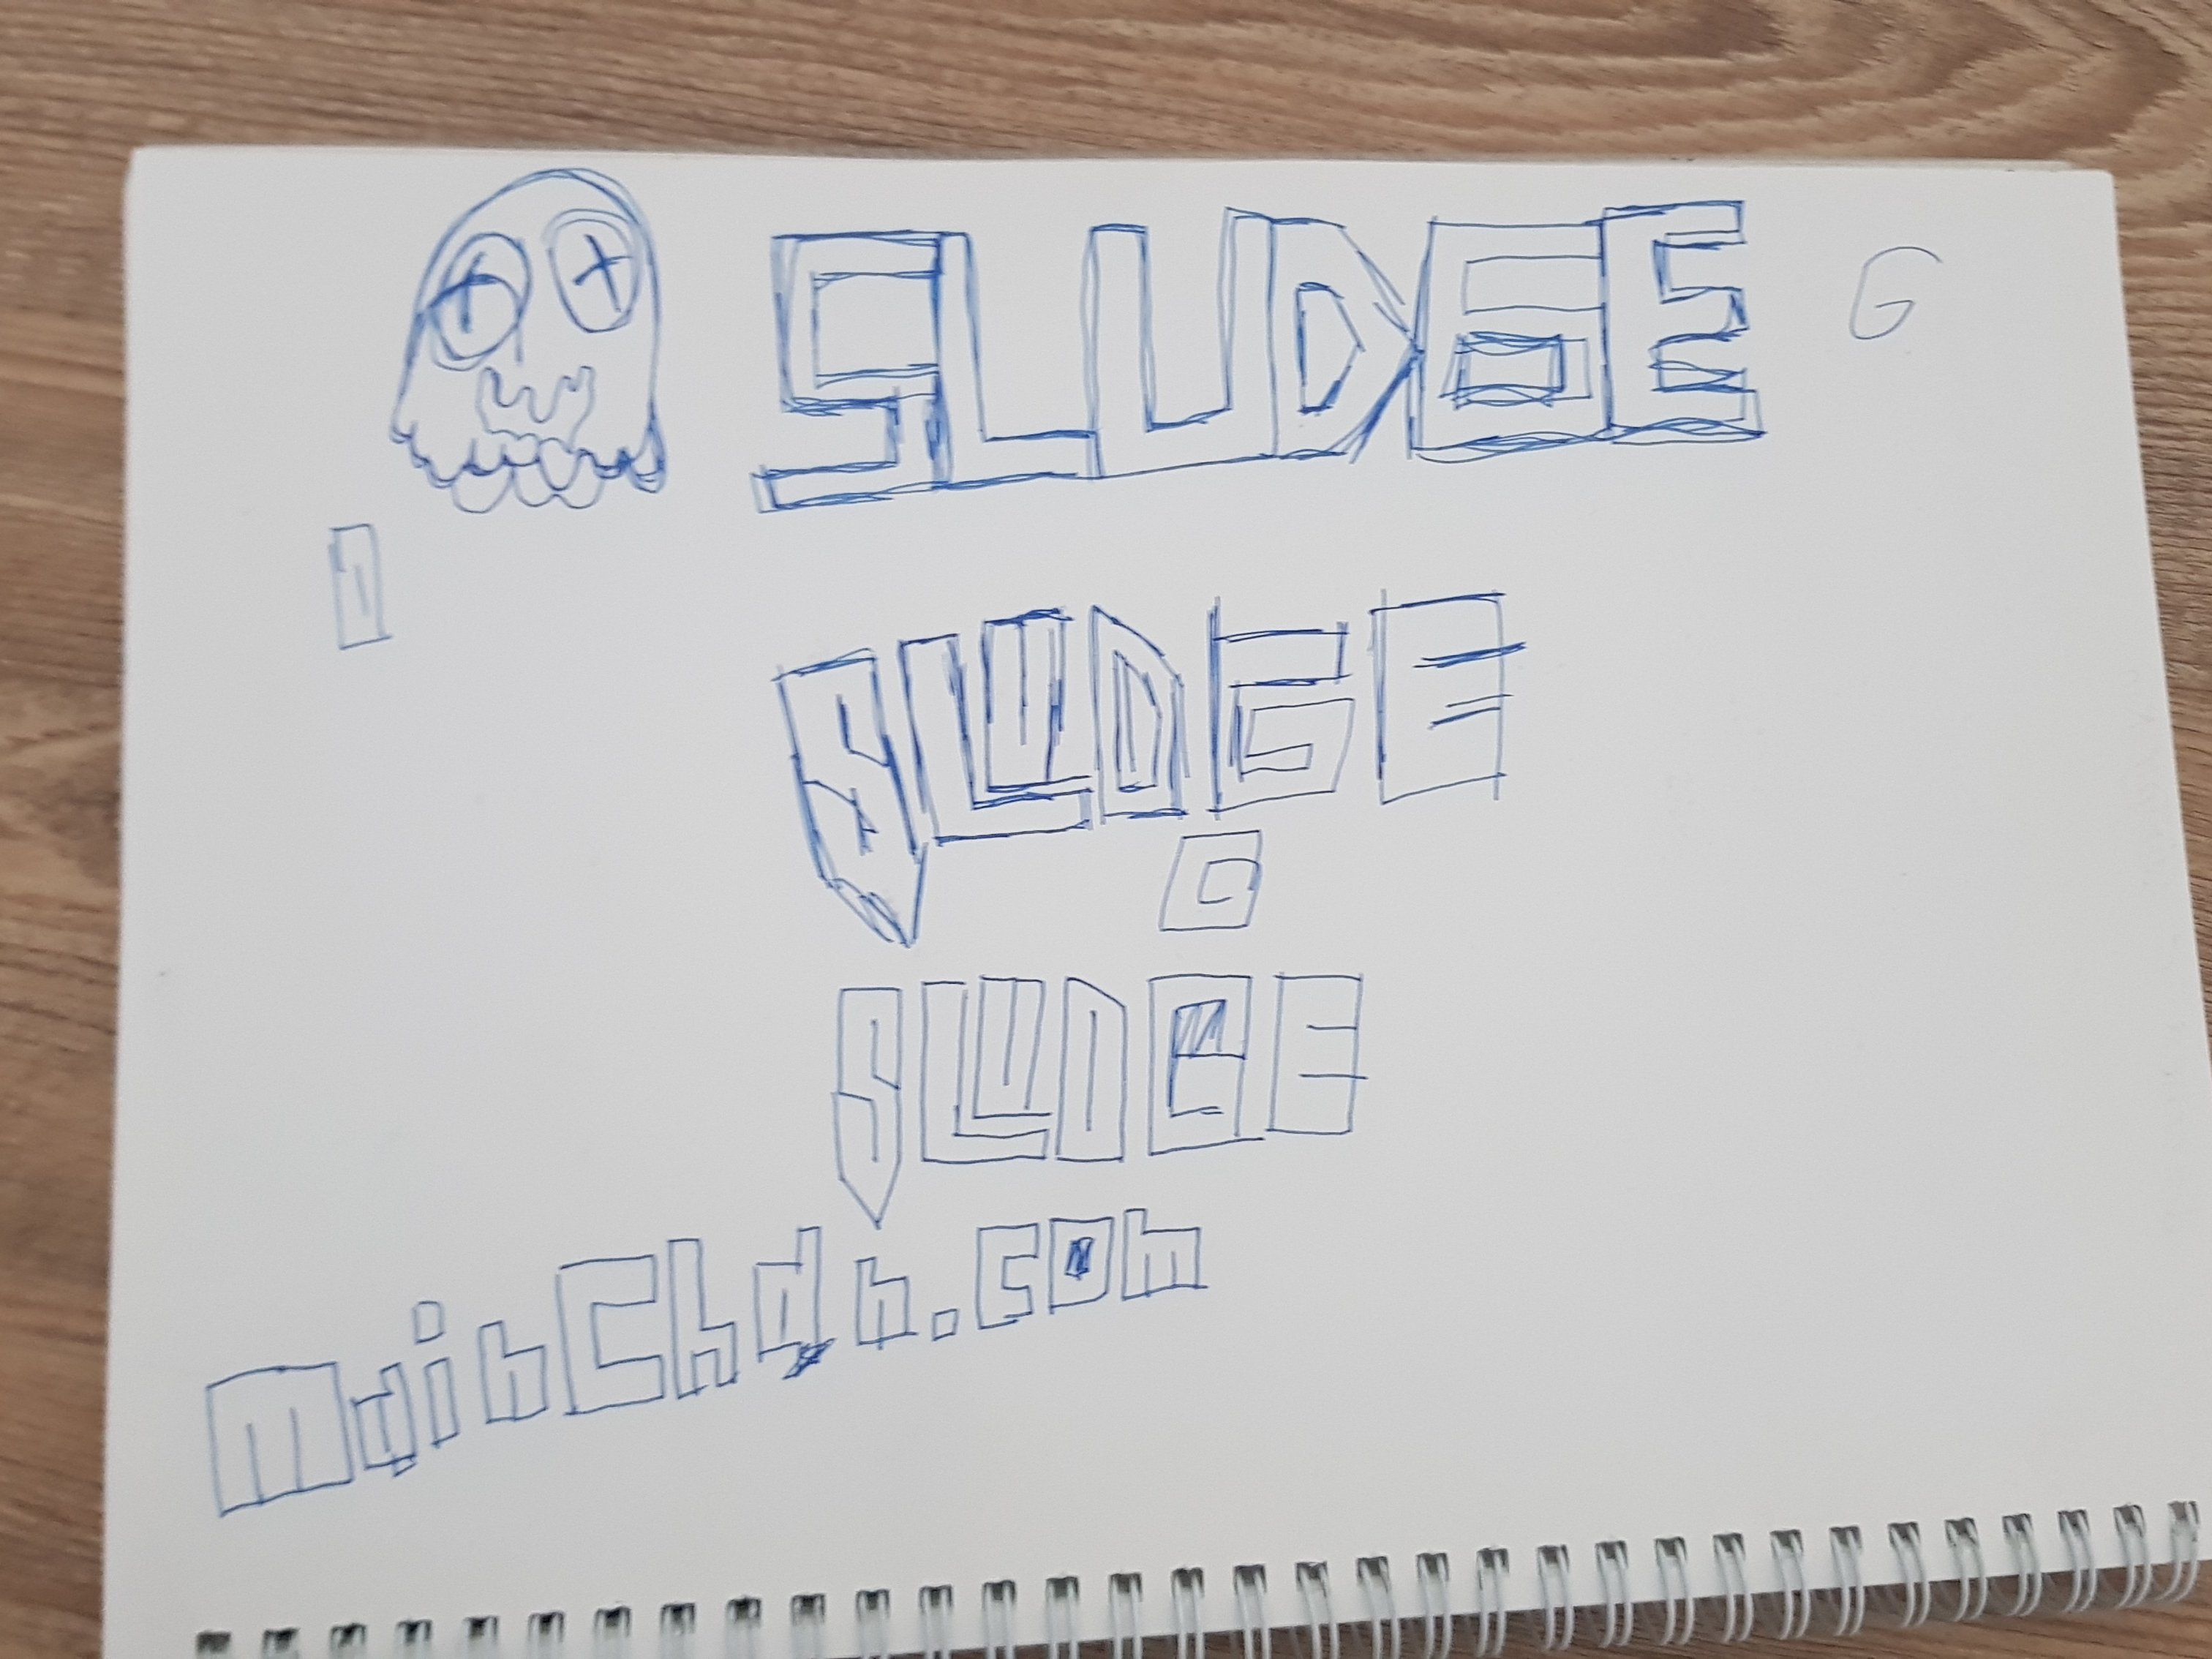 SLUDGE G
SLUDGE
G
SLUDGE
MainChan.com